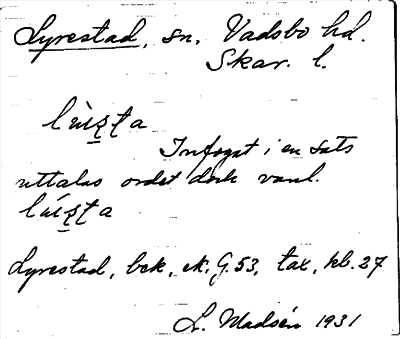 Lyrestad, sn, Vadsbo hd.
Skar. l.
Infogat i en sats
uttalas ordet dock vanl.
Lyrestad, bek, ek. G. 53, tax, kb. 27
L. Madsén 1931